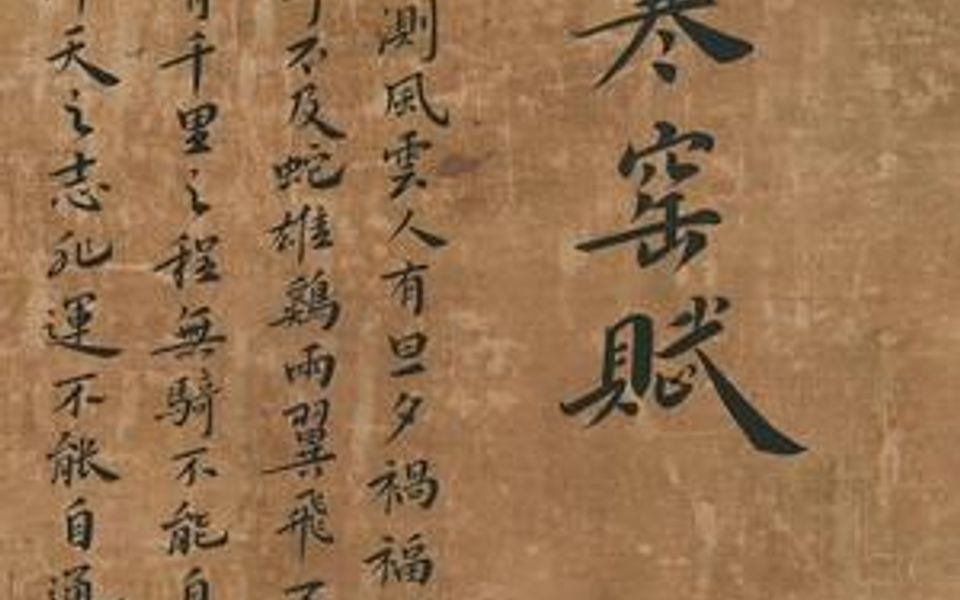 寒窑賦
測風雲人有旦夕禍福
不及蛇雄鷄兩翼飛不
有千里之程無騎不能自
天之志非運不能自通